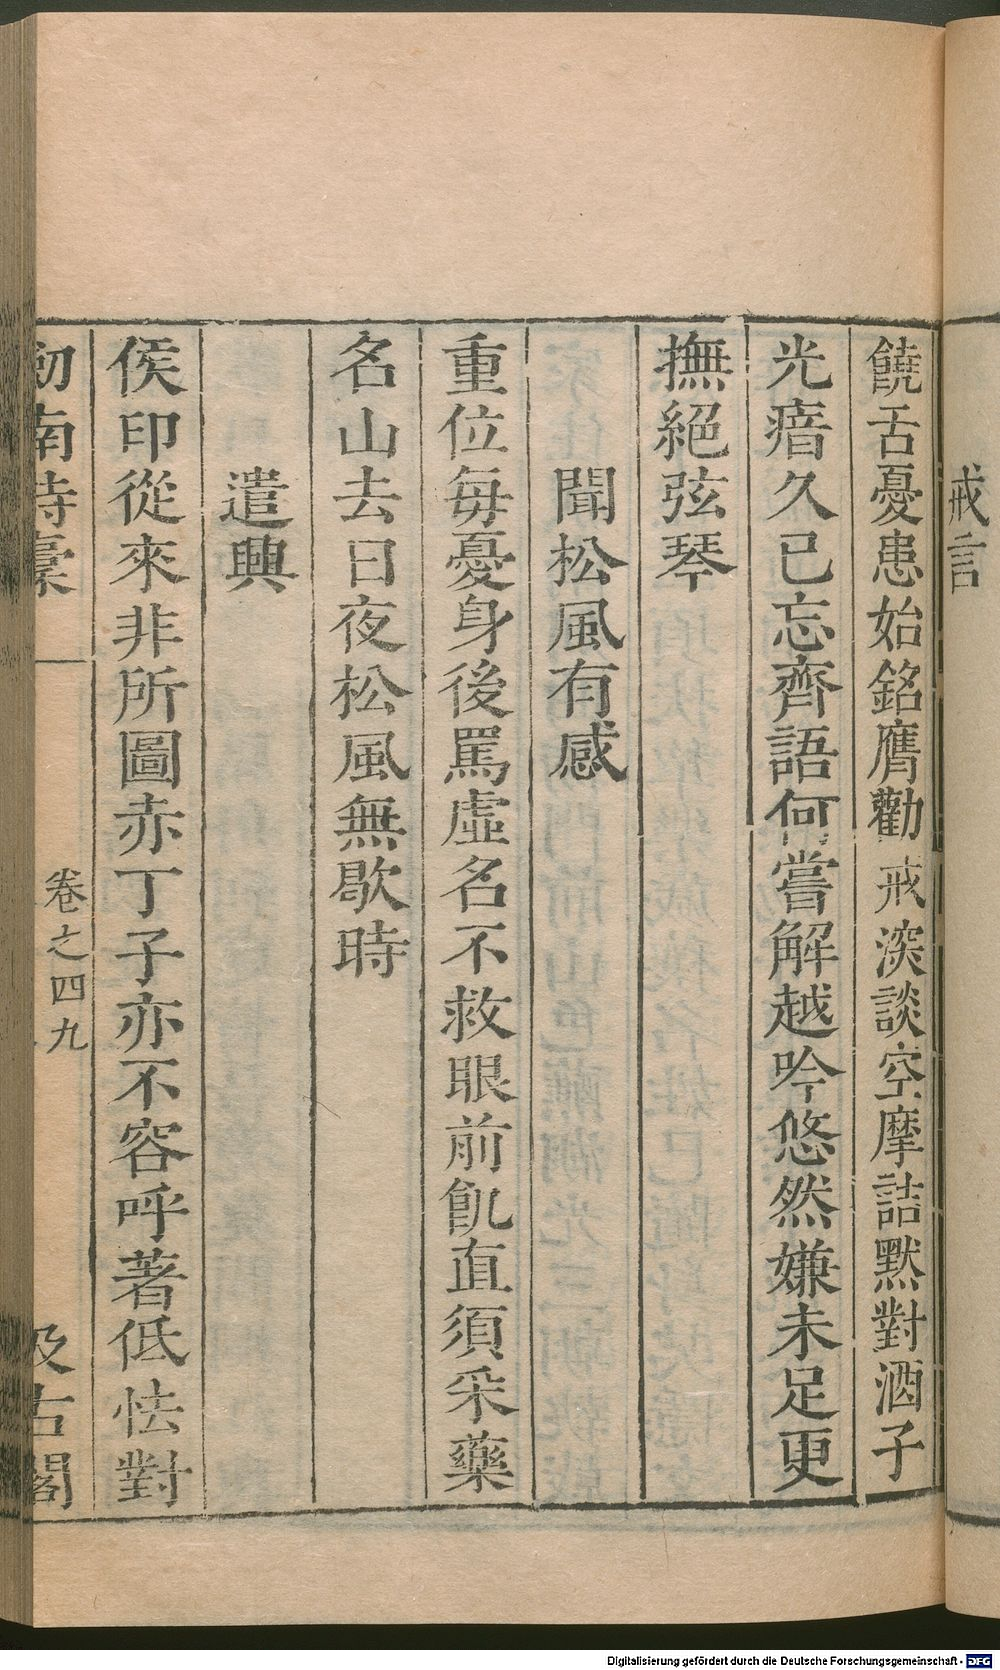 戒言
饒舌憂患始銘膺勸戒深談空摩詰默對酒子
光瘖久已忘齊語何嘗解越吟悠然嫌未足更
撫絕弦琴
聞松風有感
重位每憂身後罵虛名不救眼前飢直須采藥
名山去日夜松風無歇時
遣興
侯印從來非所圖赤丁子亦不容呼著低怯對
劒南詩稾
卷之四九
汲古閣
Digitalisierung gefördert durch die Deutsche Forschungsgemeinschaft - DFG